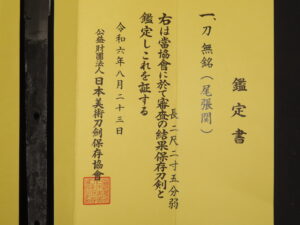 鑑定書
一、刀 無銘（尾張関）
長二尺二寸五分弱
右は當協會に於て審査の結果保存刀剣と
鑑定しこれを証する
令和六年八月二十三日
公益財團法人日本美術刀剣保存協會